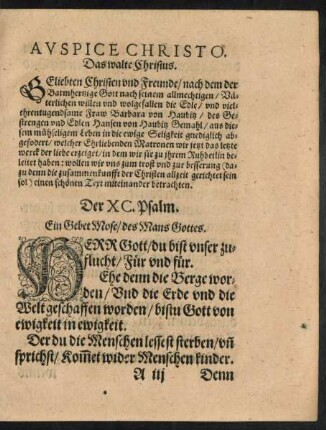 AVSPICE CHRISTO.
Das walte Christus.
GEliebten Christen vnd Freunde/ nach dem der
Barmhertzige Gott nach seinem allmechtigen/ Vä-
terlichen willen vnd wolgefallen die Edle/ vnd viel-
ehrentugendsame Fraw Barbara von Haubitz/ des Ge-
strengen vnd Edlen Hansen von Haubitz Gemahl/ aus die-
sem mühseligem Leben in die ewige Seligkeit gnediglich ab-
gefodert/ welcher Ehrliebenden Matronen wir jezt das letzte
werck der liebe erzeiget/ in dem wir sie zu jhrem Ruhbetlin be-
leitet haben: wollen wir vns zum trost vnd zur besserung (da-
zu denn die zusammenkunfft der Christen allzeit gerichtet sein
sol) einen schönen Text miteinander betrachten.
Der XC. Psalm.
Ein Gebet Mose/ des Mans Gottes.
HERR Gott/ du bist vnser zu-
flucht/ Für vnd für.
Ehe denn die Berge wor-
den/ Vnd die Erde vnd die
Welt geschaffen worden/ bistu Gott von
ewigkeit in ewigkeit.
Der du die Menschen lessest sterben/ vñ
sprichst/ Kom̃et wider Menschen kinder.
A iij Denn